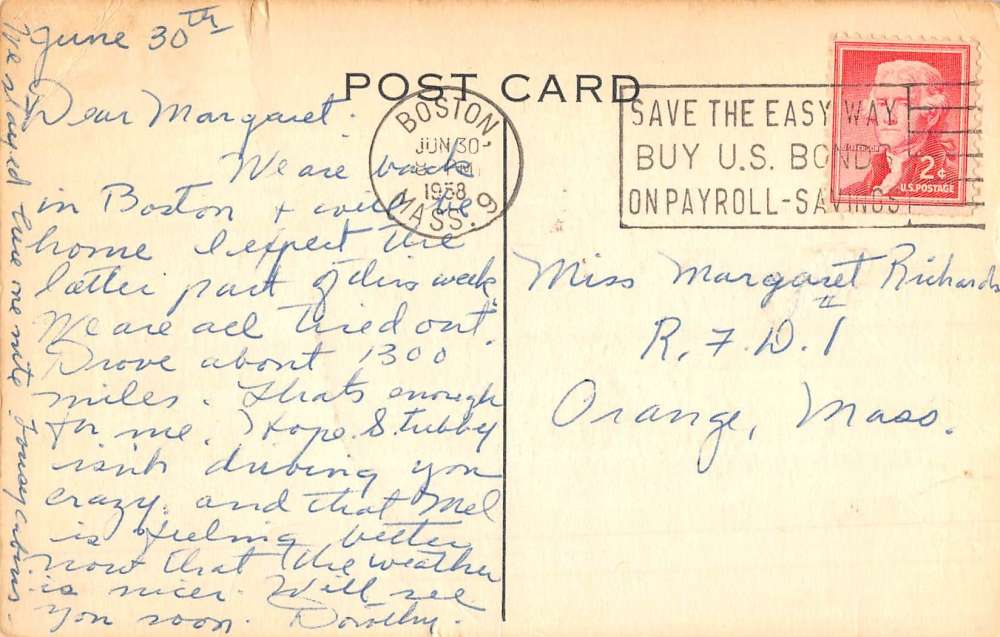 June 30th
POST CARD
Dear Margaret.
We are back
in Boston + will be
home I expect the
latter part of this week.
We are all tired out.
Drove about 1300
miles. Thats enough
for me. Hope Stubby
isn't driving you
crazy and that Mel
is feeling better
now that the weather
is nicer. Will see
you soon. Dorothy.
We stayed here one nite. cabins.
BOSTON,
JUN 30
1958
MASS. 9
SAVE THE EASY WAY
BUY U.S. BONDS
ON PAYROLL-SAVINGS
2¢
U.S. POSTAGE
Miss Margaret Richards
R.F.D. 1
Orange, Mass.